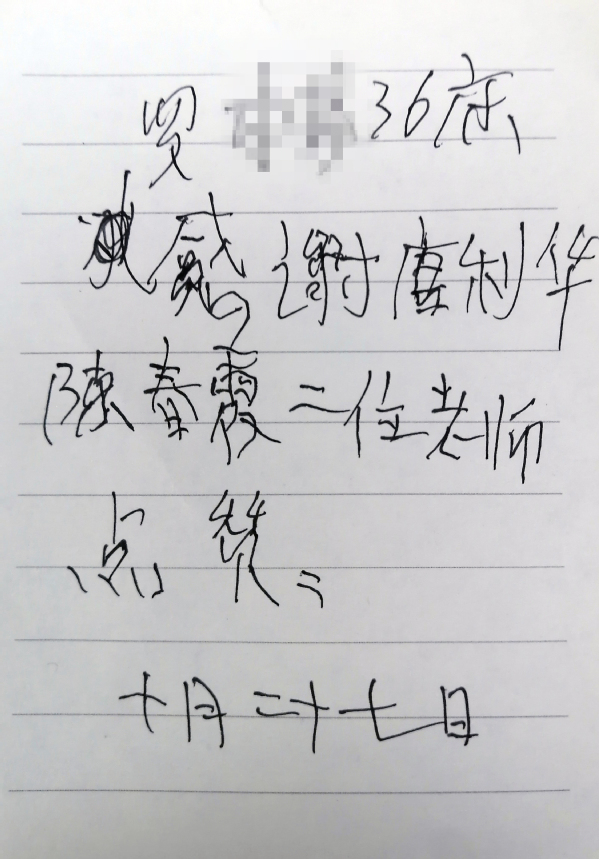 贾 36床
感谢唐利华
陳春霞二位老师
点赞
十月二十七日